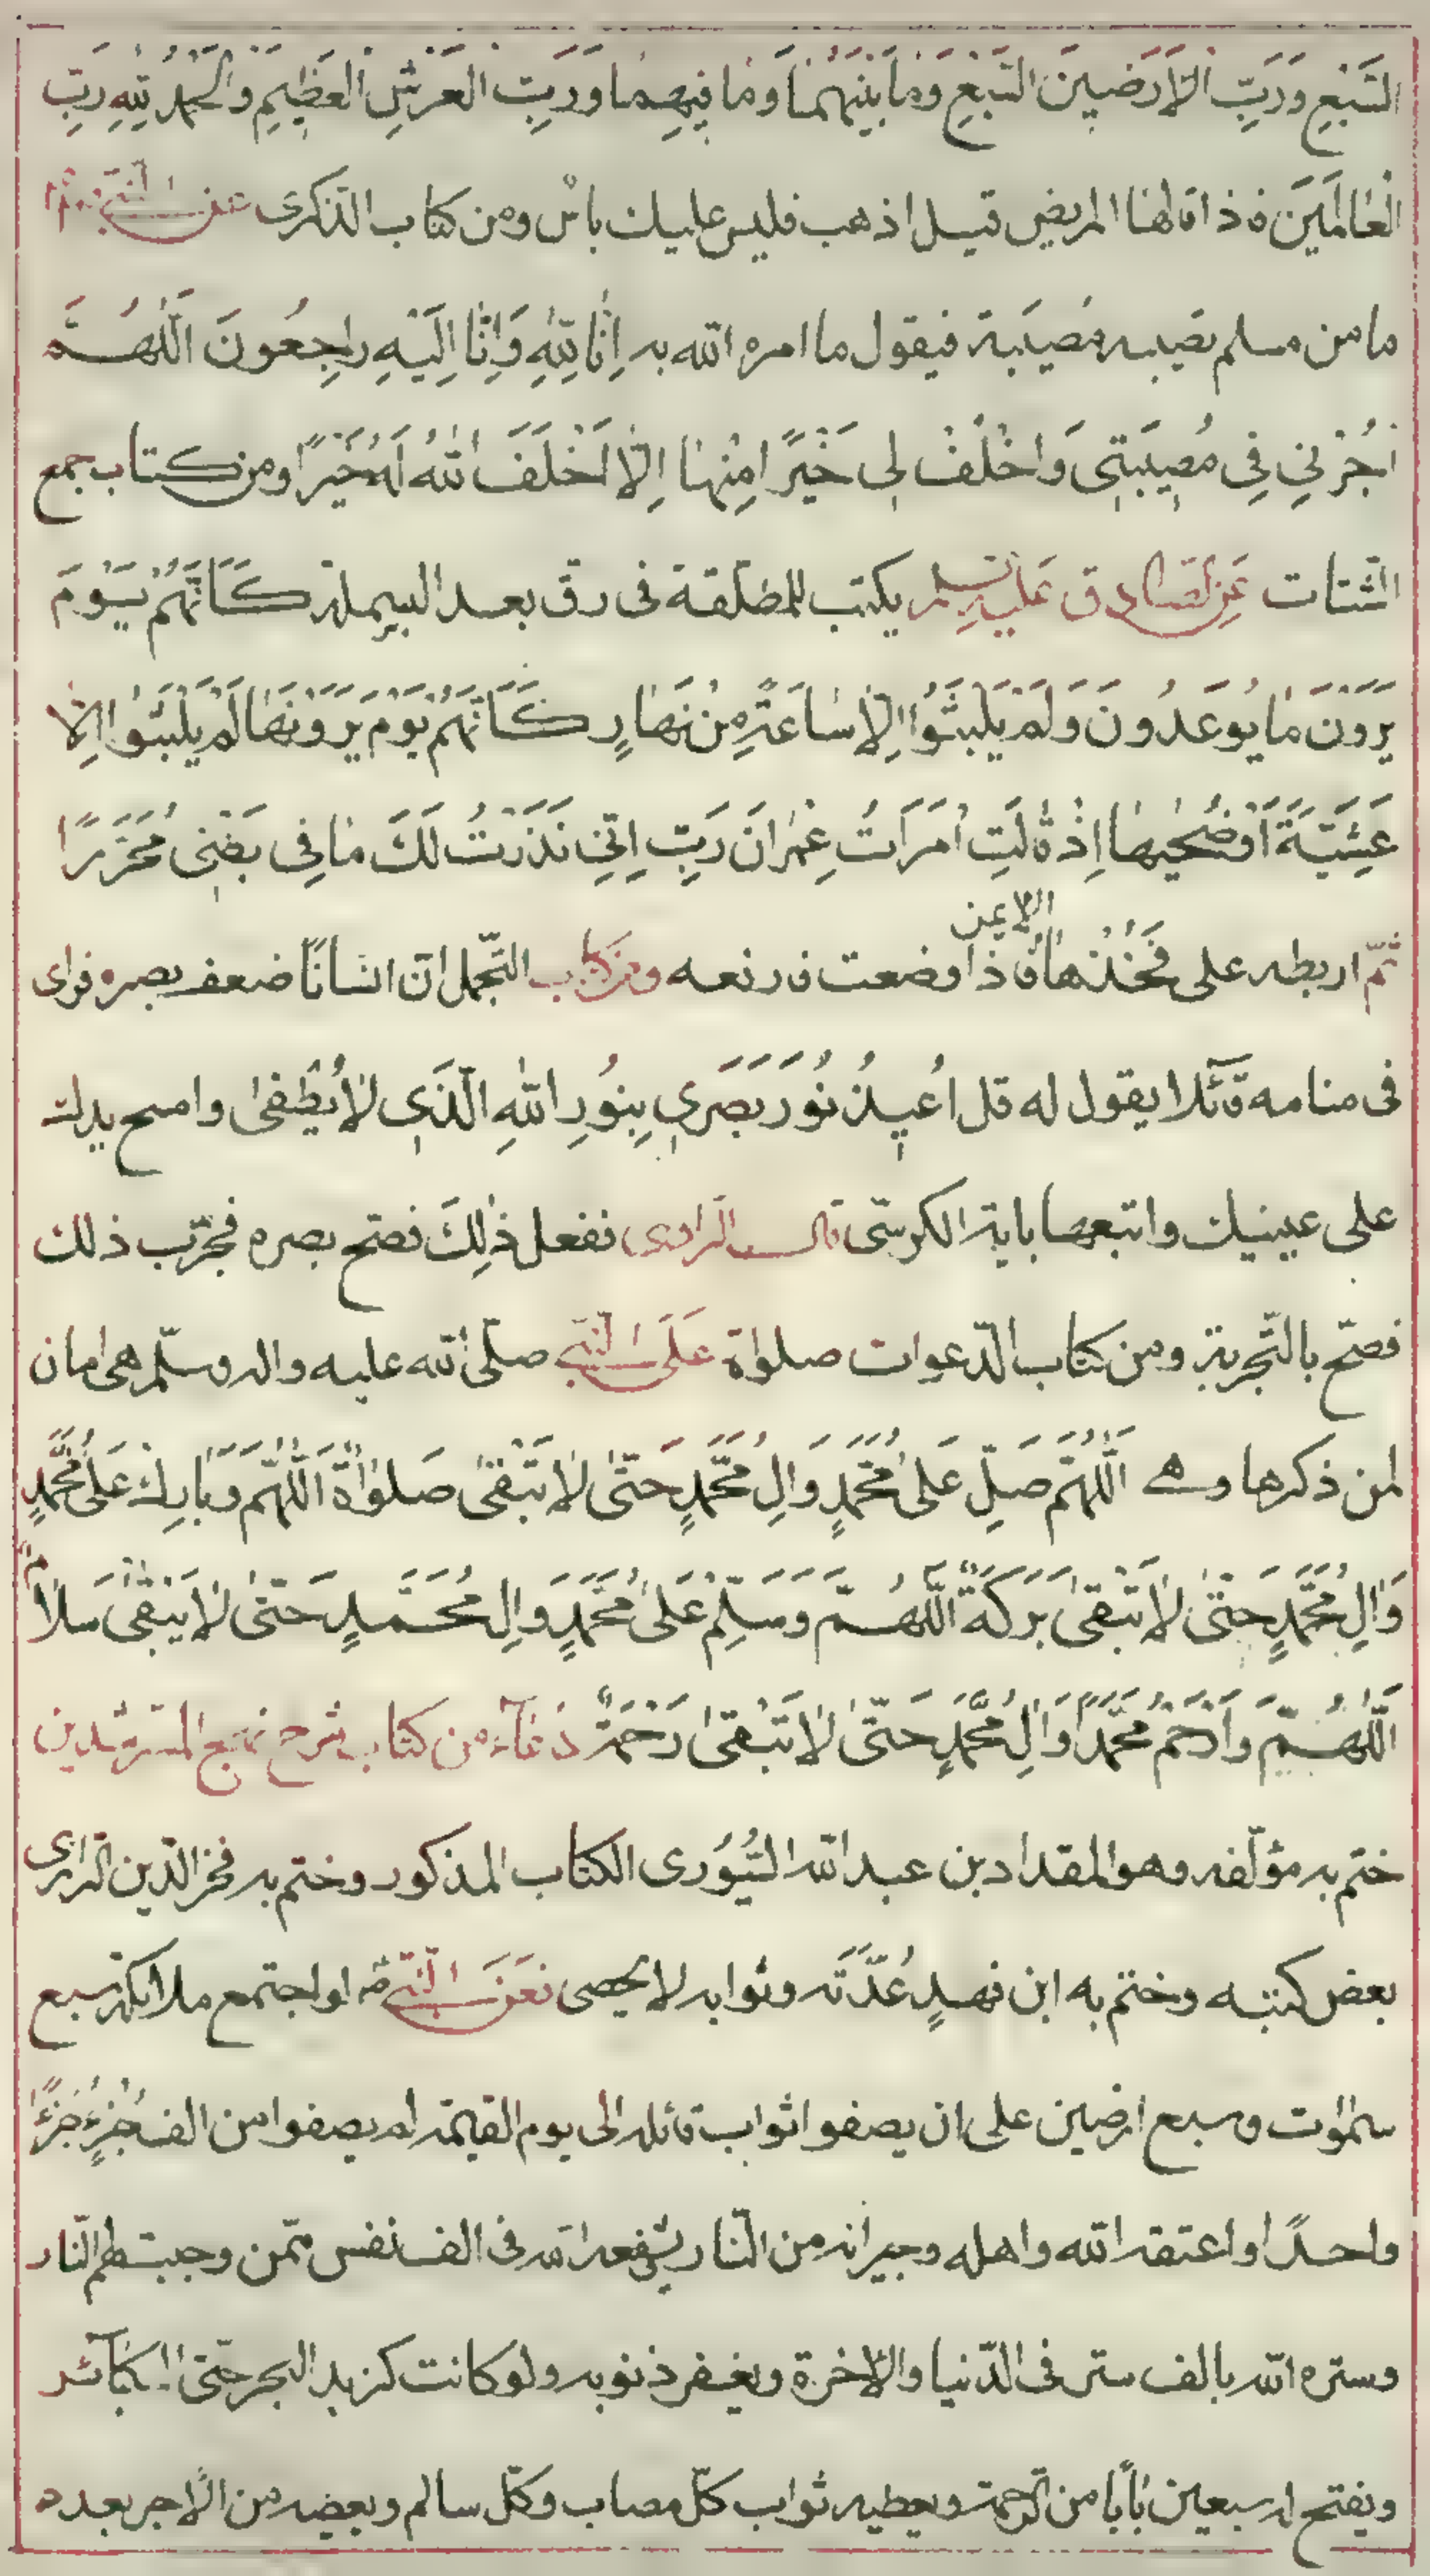 السَّبْعِ وَرَبِّ الْاَرَضينَ السَّبْعِ وَمٰا بَيْنَهُمٰا وَمٰا فيهِمٰا وَرَبِّ الْعَرْشِ الْعَظيمِ وَالْحَمْدُ لِلّٰهِ رَبِّ
الْعٰالَمينَ فاذا قالها المريض قيل اذهب فليس عليك باس ومن كتاب الذكرى عن النّبى
ما من مسلم تصيبه مُصيبَة فيقول ما امره الله به اِنّٰا لِلّٰهِ وَاِنّٰا اِلَيْهِ رٰاجِعُونَ اَللّٰهُمَّ
اْجُرْنى فِى مُصيبَتى وَاخْلُفْ لى خَيْرًا مِنْهٰا اِلّٰا اَخْلَفَ اللهُ لَهُ خَيْرًا ومن كتاب جمع
الشّتات عَنِ الصّادق عَليه السّلم يكتب للمطلّقة فى رق بعد البسملة كَاَنَّهُمْ يَوْمَ
يَرَوْنَ مٰا يُوعَدُونَ وَلَمْ يَلْبَثُوا اِلّٰا سٰاعَةً مِنْ نَهٰارٍ كَاَنَّهُمْ يَوْمَ يَرَوْنَهٰا لَمْ يَلْبَثُوا اِلّٰا
عَشِيَّةً اَوْ ضُحٰيهٰا اِذْ قٰالَتِ امْرَاَتُ عِمْرٰانَ رَبِّ اِنّى نَذَرْتُ لَكَ مٰا فِى بَطْنى مُحَرَّرًا
ثمّ اربطه على فَخُذِهَا الايمن فاذا وضعت فارفعه ومن كتاب التّجمل انّ انسانًا ضعف بصره فراى
فى منامه قآئلا يقول له قل اُعيذُ نُورَ بَصَرى بِنُورِ اللهِ الَّذى لٰا يُطْفىٰ وامسح يدك
على عينيك واتبعها باية الكرسّى قال الرّاوى ففعل ذٰلِكَ فصح بصره فجرّب ذلك
فصّح بالتّجربة ومن كتاب الدّعوات صلوٰة عَلَى النَّبى صلّى الله عليه واله وسلّم هى امان
لمن ذكرها وهى اَللّٰهُمَّ صَلِّ عَلىٰ مُحَمَّدٍ وَالِ مُحَمَّدٍ حَتّىٰ لٰا تَبْقىٰ صَلوٰةٌ اَللّٰهُمَّ وَبٰارِكْ عَلىٰ مُحَمَّدٍ
وَالِ مُحَمَّدٍ حَتّىٰ لٰا تَبْقىٰ بَرَكَةٌ اَللّٰهُمَّ وَسَلِّمْ عَلىٰ مُحَمَّدٍ وَالِ مُحَمَّدٍ حَتّىٰ لٰا يَبْقىٰ سَلٰامٌ
اَللّٰهُمَّ وَارْحَمْ مُحَمَّدًا وَالِ مُحَمَّدٍ حَتّىٰ لٰا تَبْقىٰ رَحْمَةٌ دُعآء من كتاب شرح نهج المسترشدين
ختم به مؤلّفه وهو المقداد بن عبد الله السُّيُوُرى الكتاب المذكور وختم به فخر الدّين الرّازى
بعض كتبه وختم به ابن فهدٍ عُدَّتَه وثوابه لا يحصى فعَنَ النَّبى ص لو اجتمع ملائكة سبع
سمٰوٰت وسبع ارضين على ان يصفوا ثواب قائله الى يوم القيٰمة لم يصفوا من الف جُزْءٍ جُزْءًا
واحدًا واعتقه الله واهله وجيرانه من النّار يشفعه الله فى الف نفس ممّن وجبت لهم النّار
وستره الله بالف ستر فى الدّنيا والاٰخرة ويغفر ذنوبه ولو كانت كزبد البحر حتّى الكبآئر
ويفتح له سبعين بٰابًا من الرّحمة ويعطيه ثواب كلّ مصاب وكلّ سالم ويعطيه من الاجر بعدد